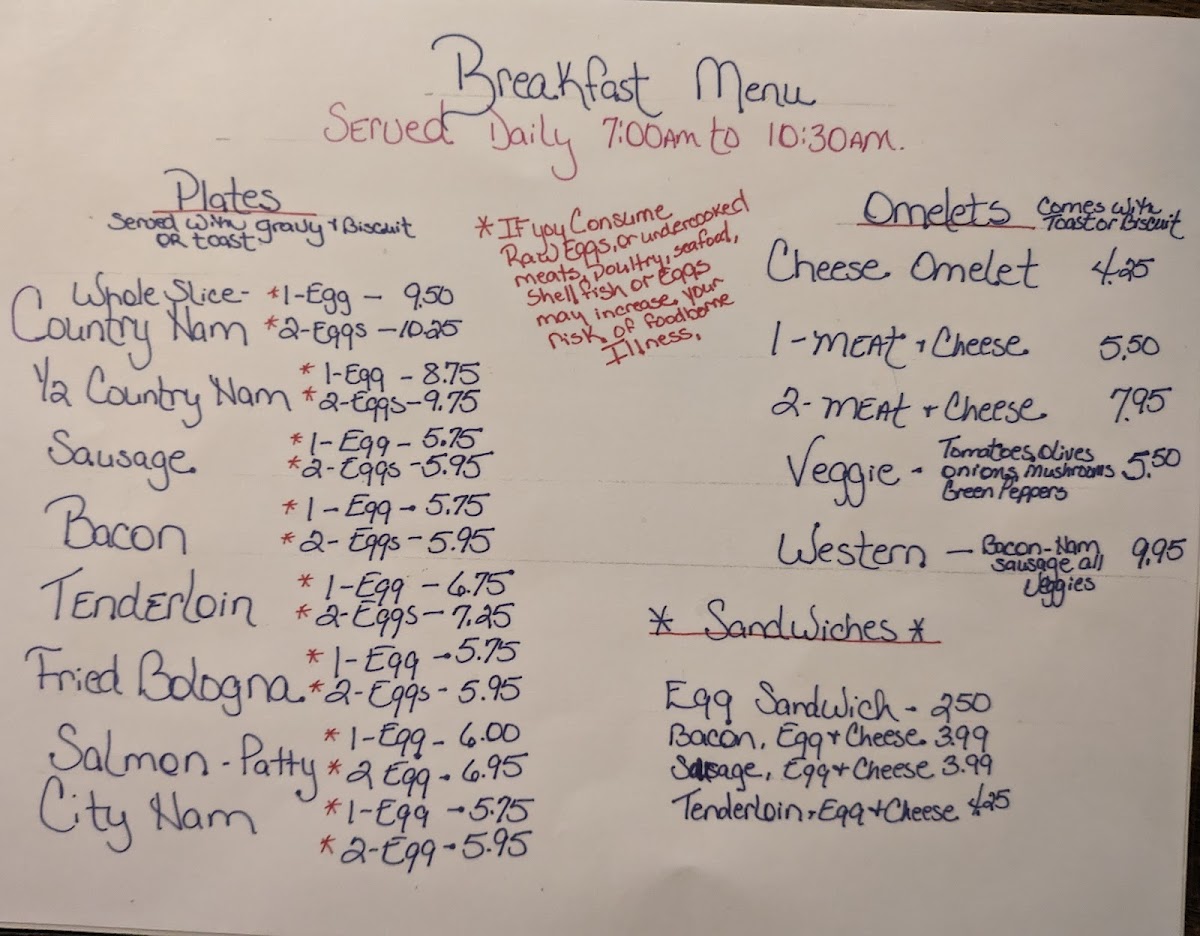 Breakfast Menu
Served Daily 7:00AM to 10:30AM.
Plates
Served with gravy & Biscuit
OR toast
Whole Slice- *1-Egg - 9.50
Country Ham *2-Eggs - 10.25
1/2 Country Ham *1-Egg - 8.75
*2-Eggs - 9.75
Sausage *1-Egg - 5.75
*2-Eggs - 5.95
Bacon *1-Egg - 5.75
*2-Eggs - 5.95
Tenderloin *1-Egg - 6.75
*2-Eggs - 7.25
Fried Bologna *1-Egg - 5.75
*2-Eggs - 5.95
Salmon-Patty *1-Egg - 6.00
*2 Egg - 6.95
City Ham *1-Egg - 5.75
*2-Egg - 5.95
*If you Consume
Raw Eggs, or undercooked
meats, poultry, seafood,
Shellfish or Eggs
may increase your
risk of foodborne
Illness.
Omelets Comes with
Toast or Biscuit
Cheese Omelet 4.25
1-Meat & Cheese 5.50
2-Meat & Cheese 7.95
Veggie - Tomatoes, olives
onions, Mushrooms 5.50
Green Peppers
Western - Bacon-Ham, 9.95
sausage all
Veggies
* Sandwiches *
Egg Sandwich - 250
Bacon, Egg & Cheese 3.99
Sausage, Egg & Cheese 3.99
Tenderloin, Egg & Cheese 4.25